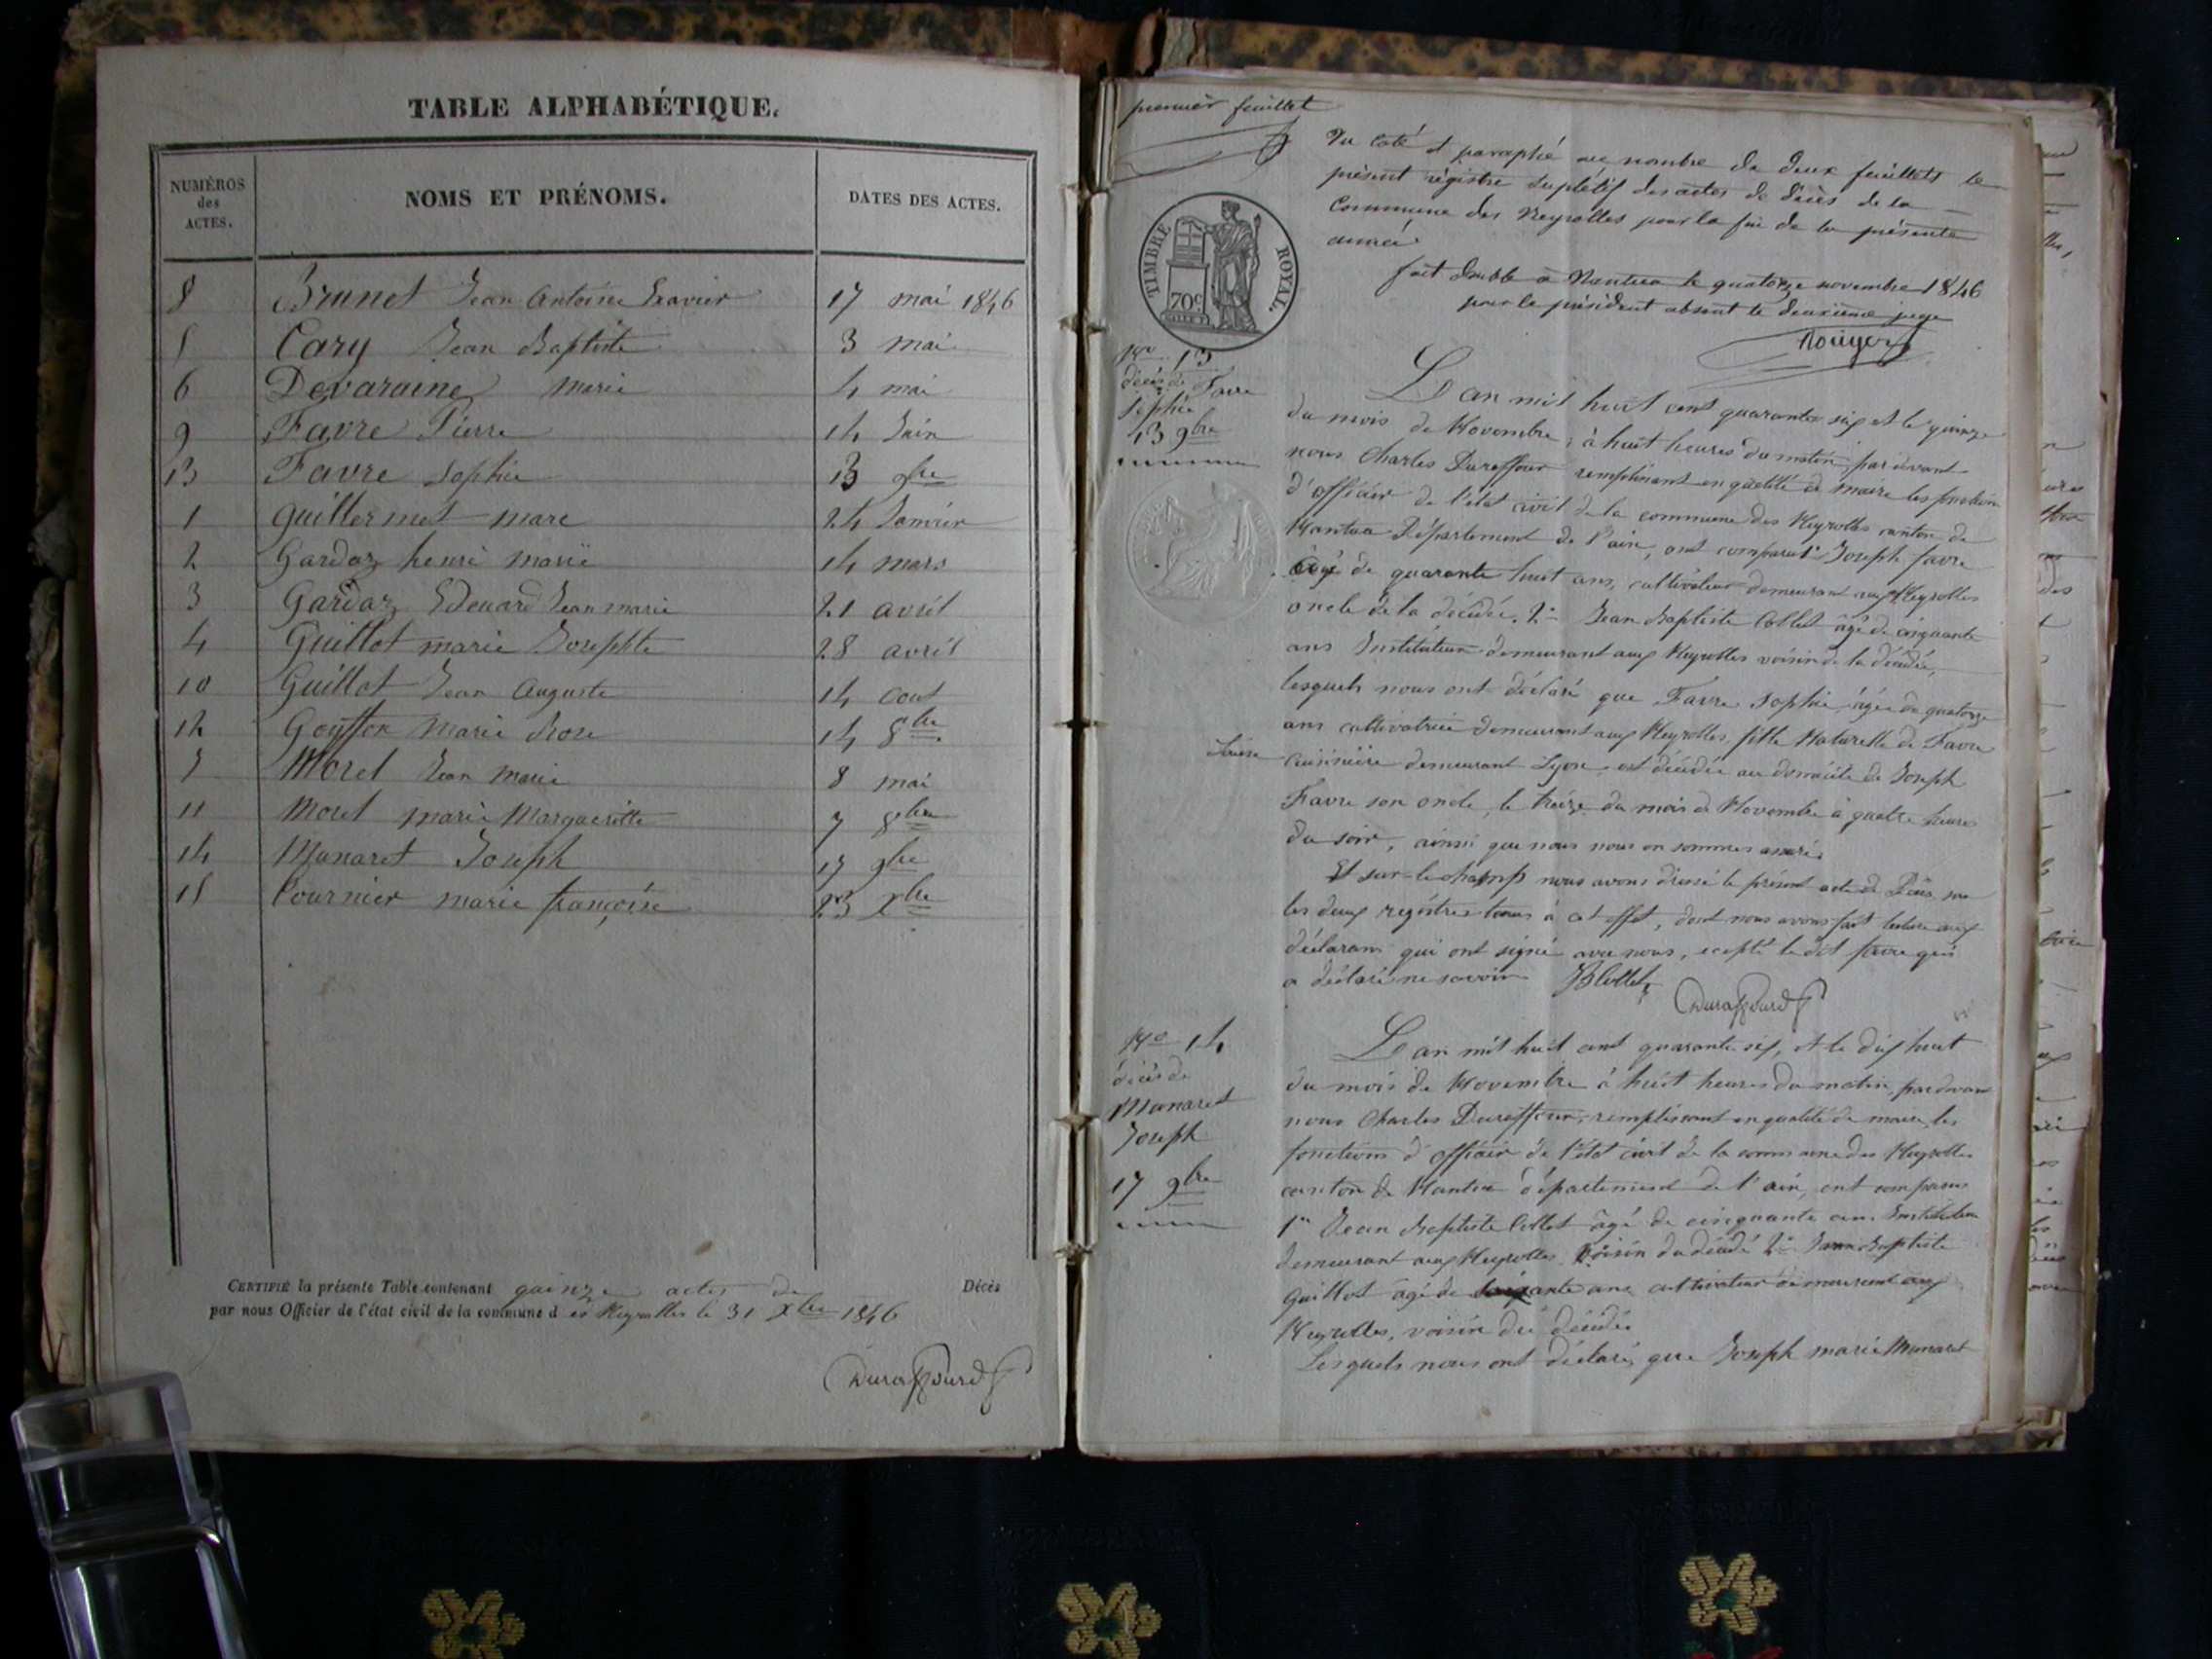 TABLE ALPHABÉTIQUE.
NUMÉROS des ACTES.
NOMS ET PRÉNOMS.
DATES DES ACTES.
8 Brunet Jean Antoine Xavier 17 mai 1846
5 Cary Jean Baptiste 3 mai
6 Devaraine Marie 4 mai
9 Favre Pierre 14 Juin
13 Favre Sophie 13 9bre
1 Guillermet marc 24 Janvier
2 Gardaz henri marie 14 mars
3 Gardaz Edouard Jean marie 21 avril
4 Guillot marie Josephte 28 avril
10 Guillot Jean Auguste 14 aout
12 Goyffon Marie Rose 14 8bre
7 Morel Jean Marie 8 mai
11 Morel marie Margueritte 7 8bre
14 Munaret Joseph 17 9bre
15 Tournier marie françoise 23 Xbre
CERTIFIÉ la présente Table contenant quinze actes de Décès
par nous Officier de l'état civil de la commune d es Neyrolles le 31 Xbre 1846
Duraffourd
premier feuillet
Vu coté et paraphé au nombre de deux feuillets le
présent régistre supletif des actes de décès de la
Commune des Neyrolles pour la fin de la présente
année
fait double à Nantua le quatorze novembre 1846
pour le président absent le deuxième juge
Rouyer
TIMBRE ROYAL.
70c
No 13
décès de Favre
Sophie
13 9bre
L'an mil huit cent quarante six et le quinze
du mois de Novembre, à huit heures du matin, par devant
nous Charles Duraffour remplissant en qualité de maire les fonctions
d'officier de l'état civil de la commune des Neyrolles canton de
Nantua Département de l'ain, ont comparu 1° Joseph favre
âgé de quarante huit ans, cultivateur demeurant aux Neyrolles
oncle de la décédée, 2° Jean Baptiste Collet âgé de cinquante
ans Instituteur demeurant aux Neyrolles voisin de la décédée,
lesquels nous ont déclaré que Favre Sophie, âgée de quatorze
ans cultivatrice demeurant aux Neyrolles, fille Naturelle de Favre
cuisinière demeurant Lyon est décédée au domicile de Joseph
Favre son oncle, le treize du mois de Novembre à quatre heures
du soir, ainsi que nous nous en sommes assuré.
Et sur-le-champ nous avons dressé le présent acte de Décès, sur
les deux régistres tenus à cet effet, dont nous avons fait lecture aux
déclarans qui ont signé avec nous, excepté le dit favre qui
a déclaré ne savoir JBCollet
Duraffourd
No 14
décès de
Munaret
Joseph
17 9bre
L'an mil huit cent quarante six, et le dix huit
du mois de Novembre à huit heures du matin, par devant
nous Charles Duraffour, remplissant en qualité de maire, les
fonctions d'officier de l'état civil de la commune des Neyrolles
canton de Nantua département de l'ain, ont comparu
1° Jean Baptiste Collet âgé de cinquante ans Instituteur
demeurant aux Neyrolles, voisin du décédé 2° Jean Baptiste
Guillot âgé de soixante ans cultivateur demeurant aux
Neyrolles, voisin du décédé
Lesquels nous ont déclaré, que Joseph marie Munaret